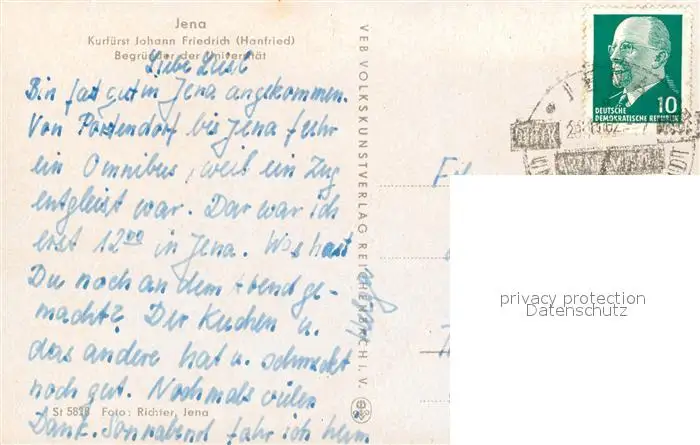 Jena
Kurfürst Johann Friedrich (Hanfried)
Begründer der Universität
Liebe
Bin fast gut in Jena angekommen.
Von Porstendorf bis Jena fuhr
ein Omnibus, weil ein Zug
entgleist war. Dar war ich
erst 12⁰⁰ in Jena. Was hast
Du noch an dem Abend ge-
macht? Der Kuchen u.
das andere hat u. schmeckt
noch gut. Nochmals vielen
Dank. Sonnabend fahr ich heim
St 5828 Foto: Richter, Jena
VEB VOLKSKUNSTVERLAG REICHENBACH I. V.
10
DEUTSCHE
DEMOKRATISCHE REPUBLIK
privacy protection
Datenschutz